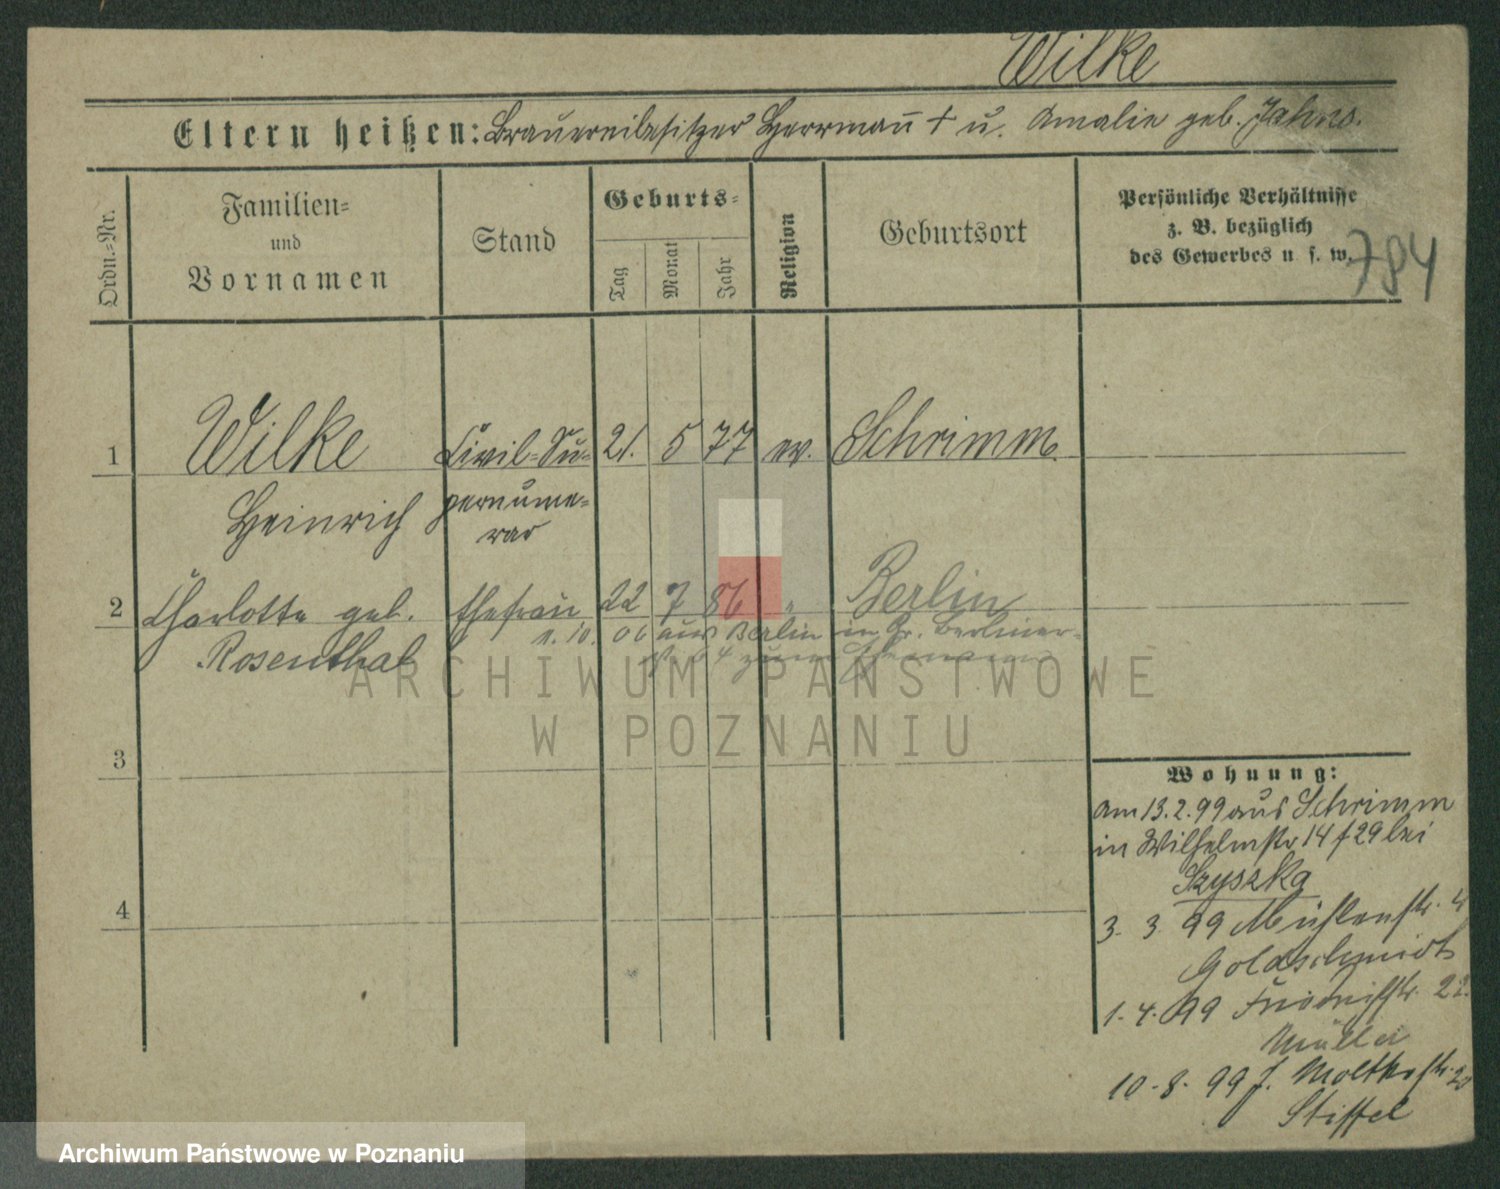 Wilke
Eltern heißen: Brauereibesitzer Herrmann † u. Amalie geb. Jahns.
Ordn.-Nr.
Familien-
und
Vornamen
Stand
Geburts-
Tag
Monat
Jahr
Religion
Geburtsort
Persönliche Verhältnisse
z. B. bezüglich
des Gewerbes u s. w.
784
1 Wilke Civil-Su- 21. 5 77 ev. Schrimm
Heinrich pernume-
rar
2 Charlotte geb. Ehefrau 22 7 86 " Berlin
Rosenthal 1. 10. 06 aus Berlin in Gr. Berliner-
str. 64 zum Ehemann
3
4
Wohnung:
am 13.2.99 aus Schrimm
in Wilhelmstr 14 f 29 bei
Szyszka
3. 3. 99 Mühlenstr. 4
Goldschmidt
1. 4. 99 Friedrichstr. 22.
Müller
10. 8. 99 J. Moltkestr. 20
Stiffel
ARCHIWUM PAŃSTWOWE
W POZNANIU
Archiwum Państwowe w Poznaniu